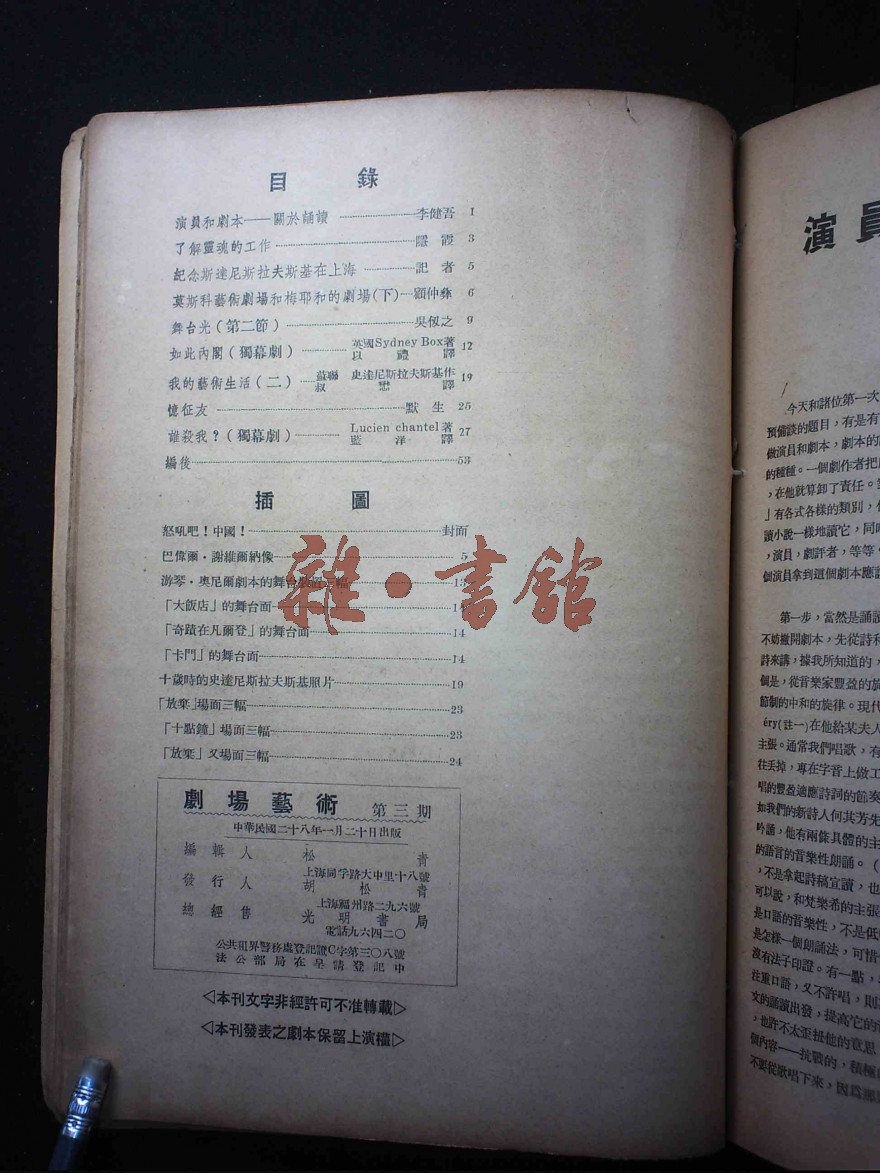 目錄
演員和劇本——關於誦讀 李健吾 1
了解靈魂的工作 隱霞 3
紀念斯達尼斯拉夫斯基在上海 記者 5
莫斯科藝術劇場和梅耶和的劇場(下) 顧仲彝 6
舞台光(第二節) 吳仭之 9
如此內閣(獨幕劇) 英國Sydney Box著 以禮譯 12
我的藝術生活(二) 蘇聯史達尼斯拉夫斯基作 叔懋譯 19
憶征友 默生 25
誰殺我?(獨幕劇) Lucien chantel著 藍洋譯 27
編後 53
插圖
怒吼吧!中國! 封面
巴偉爾·謝維爾納像 5
游琴·奧尼爾劇本的舞台裝置三幅 13
「大飯店」的舞台面
「奇蹟在凡爾登」的舞台面 14
「卡門」的舞台面 14
十歲時的史達尼斯拉夫斯基照片 19
「放棄」場面三幅 23
「十點鐘」場面三幅 23
「放棄」又場面三幅 24
劇場藝術 第三期
中華民國二十八年一月二十日出版
編輯人 松青
上海同孚路大中里十八號
發行人 胡松青
上海福州路二九六號
總經售 光明書局
電話九六四二〇
公共租界警務處登記證C字第三〇八號
法公部局在呈請登記中
◁本刊文字非經許可不准轉載▷
◁本刊發表之劇本保留上演權▷
雜·書館
演員
今天和諸位第一次
預備談的題目,有是有
做演員和劇本,劇本的
的種種。一個劇作者把
,在他就算卸了責任。
」有各式各樣的類別,
讀小說一樣地讀它,同
,演員,劇評者,等等。
個演員拿到這個劇本應該
第一步,當然是誦讀
不妨撇開劇本,先從詩和
詩來講,據我所知道的,
個是,從音樂家豐盈的旋
節制的中和的旋律。現代
éry(註一)在他給某夫人
主張。通常我們唱歌,有
往丟掉,專在字音上做工
唱的豐盈適應詩詞的節奏
如我們的新詩人何其芳先
吟誦,他有兩條具體的主
的語言的音樂性朗誦。(
,不是拿起詩稿宣讀,也
可以說,和梵樂希的主張
是口語的音樂性,不是低
是怎樣一個朗誦法,可惜
沒有法子印證。有一點,
注重口語,又不許唱,則
文的誦讀出發,提高它的
,也許不太歪扭他的意思
個內容——抗戰的,積極
不要從歌唱下來,因為那